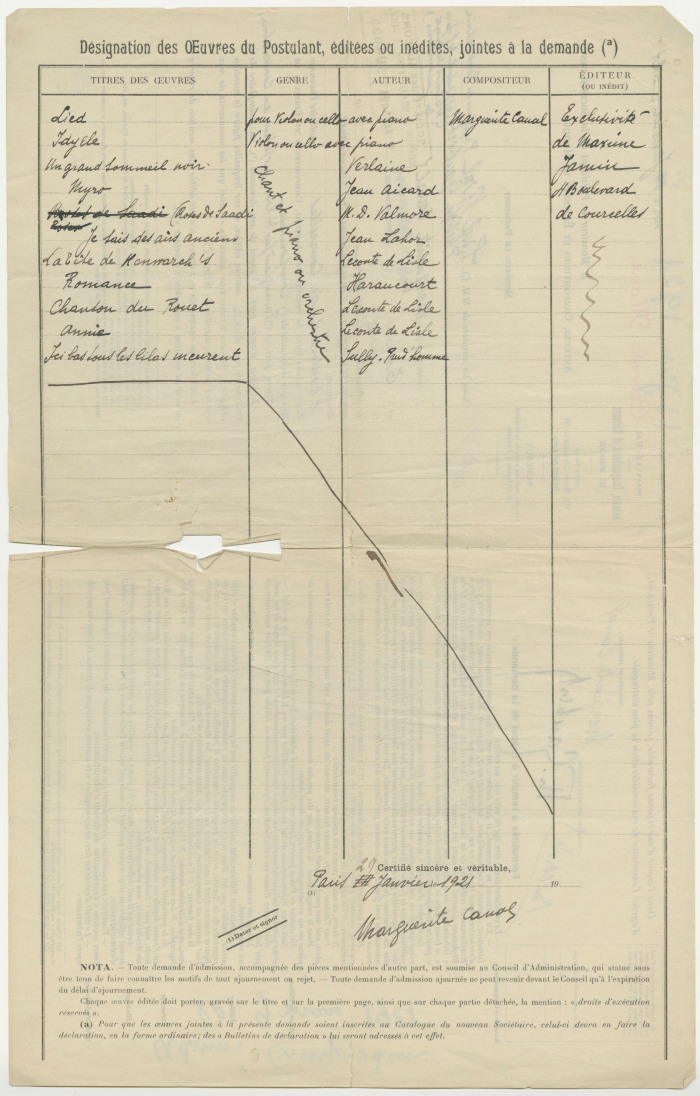 Désignation des Œuvres du Postulant, éditées ou inédites, jointes à la demande (a)
TITRES DES ŒUVRES GENRE AUTEUR COMPOSITEUR ÉDITEUR
(OU INÉDIT)
Lied pour Violon ou cello avec piano Marguerite Canal Exclusivité
Idylle Violon ou cello avec piano de Maxime
Un grand sommeil noir. Verlaine Jamin
Myro Jean Aicard Boulevard
(Roses de Saadi M. D. Valmore de Courcelles
Je sais des airs anciens Jean Lahor
La tête de Kenwarch's Leconte de Lisle
Romance Haraucourt
Chanson du Rouet Leconte de Lisle
Annie Leconte de Lisle
Ici bas tous les lilas meurent Sully. Prud'homme
Chant et piano ou orchestre
Certifié sincère et véritable,
Paris 29 Janvier 1921 19
(1)
(1) Dater et signer
Marguerite Canal
NOTA. — Toute demande d'admission, accompagnée des pièces mentionnées d'autre part, est soumise au Conseil d'Administration, qui statue sans
être tenu de faire connaître les motifs de tout ajournement ou rejet. — Toute demande d'admission ajournée ne peut revenir devant le Conseil qu'à l'expiration
du délai d'ajournement.
Chaque œuvre éditée doit porter, gravée sur le titre et sur la première page, ainsi que sur chaque partie détachée, la mention : « droits d'exécution
réservés ».
(a) Pour que les œuvres jointes à la présente demande soient inscrites au Catalogue du nouveau Sociétaire, celui-ci devra en faire la
déclaration, en la forme ordinaire; des « Bulletins de déclaration » lui seront adressés à cet effet.